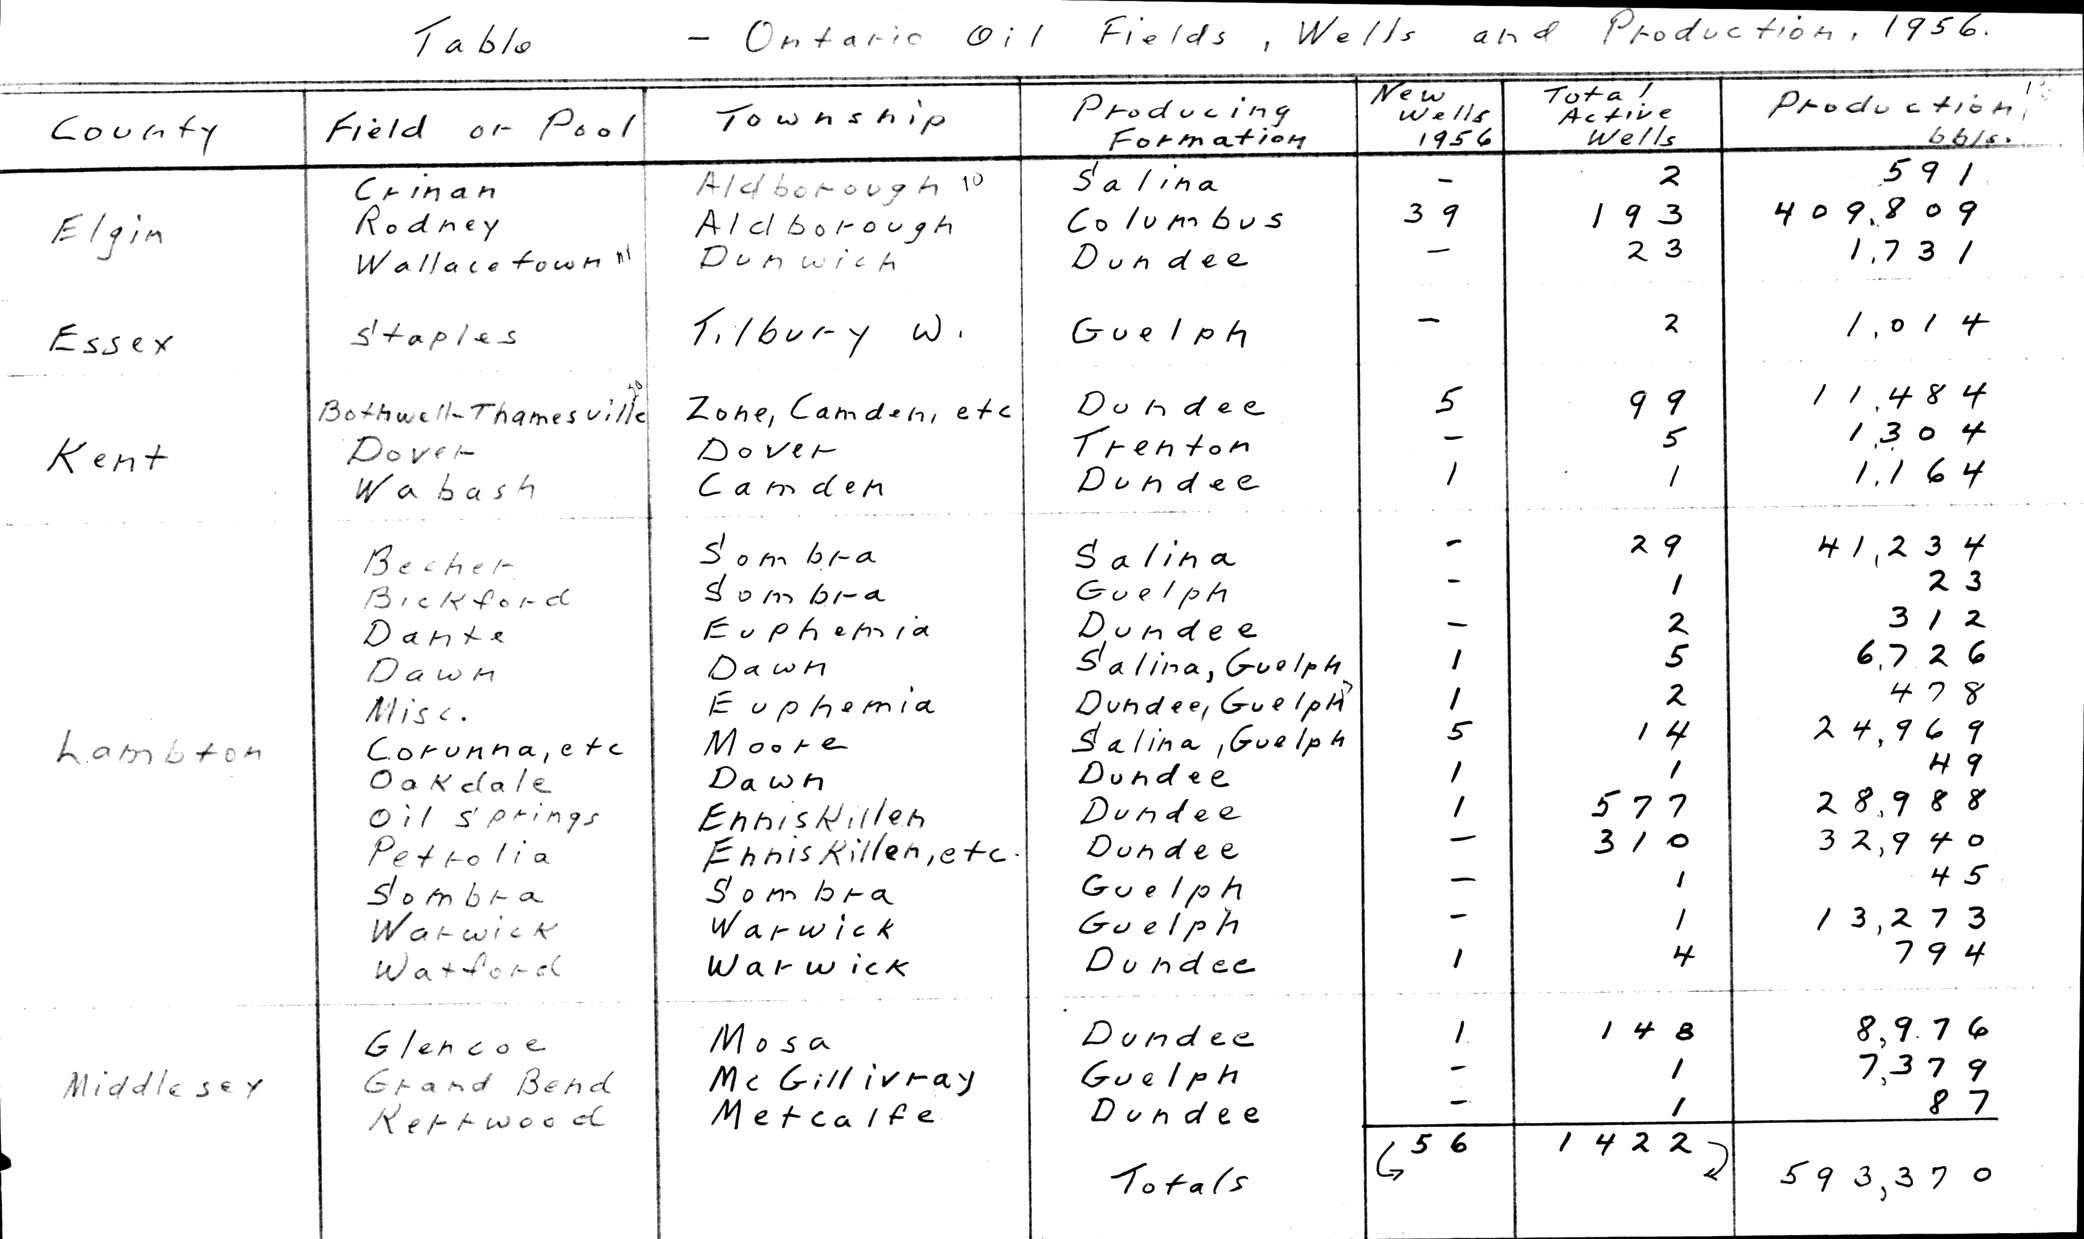 Table - Ontario Oil Fields, Wells and Production, 1956.
County Field or Pool Township Producing Formation New Wells 1956 Total Active Wells Production, bbls.
Crinan Aldborough Salina - 2 591
Elgin Rodney Aldborough Columbus 39 193 409,809
Wallacetown Dunwich Dundee - 23 1,731
Essex Staples Tilbury W. Guelph - 2 1,014
Bothwell-Thamesville Zone, Camden, etc Dundee 5 99 11,484
Kent Dover Dover Trenton - 5 1,304
Wabash Camden Dundee 1 1 1,164
Becher Sombra Salina - 29 41,234
Bickford Sombra Guelph - 1 23
Dante Euphemia Dundee - 2 312
Dawn Dawn Salina, Guelph 1 5 6,726
Misc. Euphemia Dundee, Guelph 1 2 478
Lambton Corunna, etc Moore Salina, Guelph 5 14 24,969
Oakdale Dawn Dundee 1 1 49
Oil Springs Enniskillen Dundee 1 577 28,988
Petrolia Enniskillen, etc. Dundee - 310 32,940
Sombra Sombra Guelph - 1 45
Warwick Warwick Guelph - 1 13,273
Watford Warwick Dundee 1 4 794
Glencoe Mosa Dundee 1 148 8,976
Middlesey Grand Bend McGillivray Guelph - 1 7,379
Kerrwood Metcalfe Dundee - 1 87
56 1422
Totals 593,370